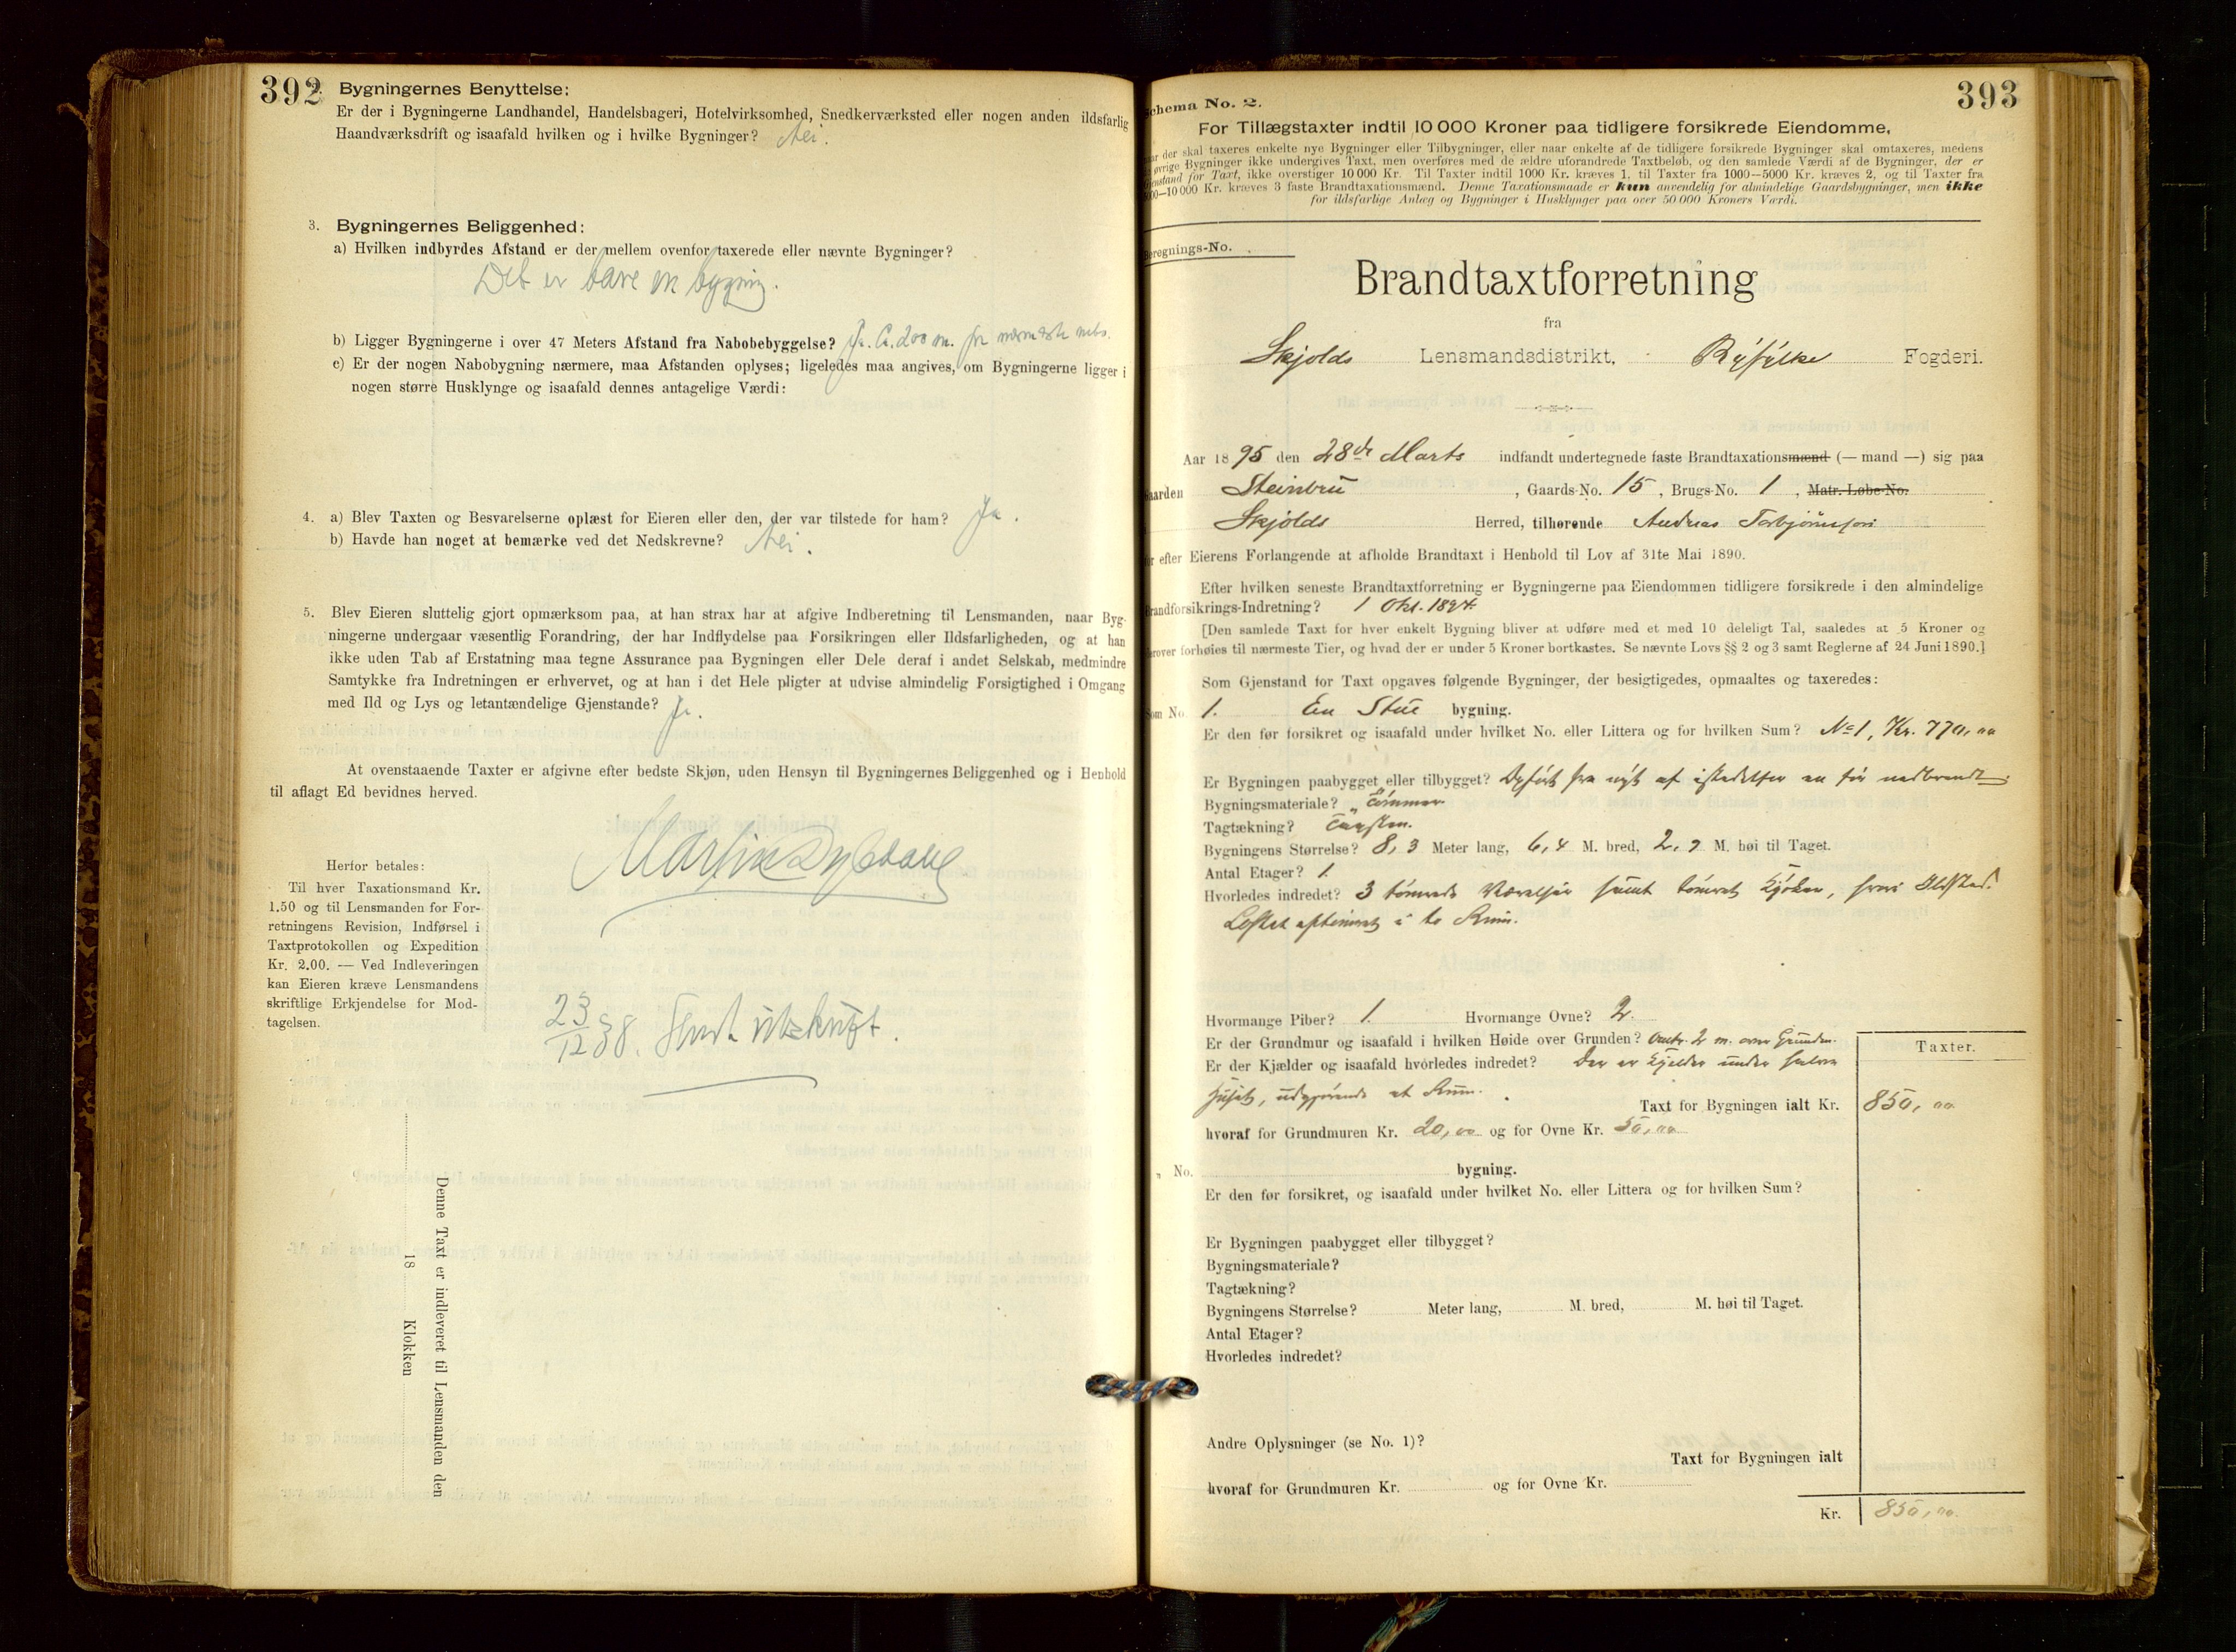 392
Bygningernes Benyttelse:
Er der i Bygningerne Landhandel, Handelsbageri, Hotelvirksomhed, Snedkerværksted eller nogen anden ildsfarlig
Haandværksdrift og isaafald hvilken og i hvilke Bygninger? Nei.
3. Bygningernes Beliggenhed:
a) Hvilken indbyrdes Afstand er der mellem ovenfor taxerede eller nævnte Bygninger?
Det er bare en bygning.
b) Ligger Bygningerne i over 47 Meters Afstand fra Nabobebyggelse? Ja. Ca. 200 m. fra nærmeste nabo.
c) Er der nogen Nabobygning nærmere, maa Afstanden oplyses; ligeledes maa angives, om Bygningerne ligger i
nogen større Husklynge og isaafald dennes antagelige Værdi:
4. a) Blev Taxten og Besvarelserne oplæst for Eieren eller den, der var tilstede for ham? Ja.
b) Havde han noget at bemærke ved det Nedskrevne? Nei.
5. Blev Eieren sluttelig gjort opmærksom paa, at han strax har at afgive Indberetning til Lensmanden, naar Byg-
ningerne undergaar væsentlig Forandring, der har Indflydelse paa Forsikringen eller Ildsfarligheden, og at han
ikke uden Tab af Erstatning maa tegne Assurance paa Bygningen eller Dele deraf i andet Selskab, medmindre
Samtykke fra Indretningen er erhvervet, og at han i det Hele pligter at udvise almindelig Forsigtighed i Omgang
med Ild og Lys og letantændelige Gjenstande? Ja.
At ovenstaaende Taxter er afgivne efter bedste Skjøn, uden Hensyn til Bygningernes Beliggenhed og i Henhold
til aflagt Ed bevidnes herved.
Martin
Herfor betales:
Til hver Taxationsmand Kr.
1.50 og til Lensmanden for For-
retningens Revision, Indførsel i
Taxtprotokollen og Expedition
Kr. 2.00. — Ved Indleveringen
kan Eieren kræve Lensmandens
skriftlige Erkjendelse for Mod-
tagelsen.
23/12 38. Sendt utskrift.
Denne Taxt er indleveret til Lensmanden den
18 Klokken
393
Schema No. 2.
For Tillægstaxter indtil 10 000 Kroner paa tidligere forsikrede Eiendomme,
naar der skal taxeres enkelte nye Bygninger eller Tilbygninger, eller naar enkelte af de tidligere forsikrede Bygninger skal omtaxeres, medens
øvrige Bygninger ikke undergives Taxt, men overføres med de ældre uforandrede Taxtbeløb, og den samlede Værdi af de Bygninger, der er
Gjenstand for Taxt, ikke overstiger 10 000 Kr. Til Taxter indtil 1000 Kr. kræves 1, til Taxter fra 1000—5000 Kr. kræves 2, og til Taxter fra
5000—10 000 Kr. kræves 3 faste Brandtaxationsmænd. Denne Taxationsmaade er kun anvendelig for almindelige Gaardsbygninger, men ikke
for ildsfarlige Anlæg og Bygninger i Husklynger paa over 50 000 Kroners Værdi.
Beregnings-No.
Brandtaxtforretning
fra
Skjolds Lensmandsdistrikt, Ryfylke Fogderi.
Aar 1895 den 28de Marts indfandt undertegnede faste Brandtaxationsmænd (— mand —) sig paa
Gaarden Steinbru, Gaards-No. 15, Brugs-No. 1, Matr.-Løbe-No.
Skjolds Herred, tilhørende Andreas Torbjørnsen
for efter Eierens Forlangende at afholde Brandtaxt i Henhold til Lov af 31te Mai 1890.
Efter hvilken seneste Brandtaxtforretning er Bygningerne paa Eiendommen tidligere forsikrede i den almindelige
Brandforsikrings-Indretning? 1 Okt. 1894.
[Den samlede Taxt for hver enkelt Bygning bliver at udføre med et med 10 deleligt Tal, saaledes at 5 Kroner og
derover forhøies til nærmeste Tier, og hvad der er under 5 Kroner bortkastes. Se nævnte Lovs §§ 2 og 3 samt Reglerne af 24 Juni 1890.]
Som Gjenstand for Taxt opgaves følgende Bygninger, der besigtigedes, opmaaltes og taxeredes:
Som No. 1. En Stue bygning.
Er den før forsikret og isaafald under hvilket No. eller Littera og for hvilken Sum? No 1, Kr. 770,00
Er Bygningen paabygget eller tilbygget? Opført fra nyt af istedetfor en før nedbrændt.
Bygningsmateriale? Tømmer
Tagtækning? Tagsten.
Bygningens Størrelse? 8,3 Meter lang, 6,4 M. bred, 2,7 M. høi til Taget.
Antal Etager? 1.
Hvorledes indredet? 3 tømrede Værelser samt tømret Kjøken, hvori Ildsted.
Loftet aftømret i to Rum.
Hvormange Piber? 1. Hvormange Ovne? 2.
Er der Grundmur og isaafald i hvilken Høide over Grunden? Omtr. 2 m. over Grunden.
Er der Kjælder og isaafald hvorledes indredet? Der er Kjelder under halve
huset, udgjørende et Rum.
Taxter.
Taxt for Bygningen ialt Kr. 850,00
hvoraf for Grundmuren Kr. 20,00 og for Ovne Kr. 50,00
„ No. bygning.
Er den før forsikret, og isaafald under hvilket No. eller Littera og for hvilken Sum?
Er Bygningen paabygget eller tilbygget?
Bygningsmateriale?
Tagtækning?
Bygningens Størrelse? Meter lang, M. bred, M. høi til Taget.
Antal Etager?
Hvorledes indredet?
Andre Oplysninger (se No. 1)?
Taxt for Bygningen ialt
hvoraf for Grundmuren Kr. og for Ovne Kr.
Kr. 850,00.